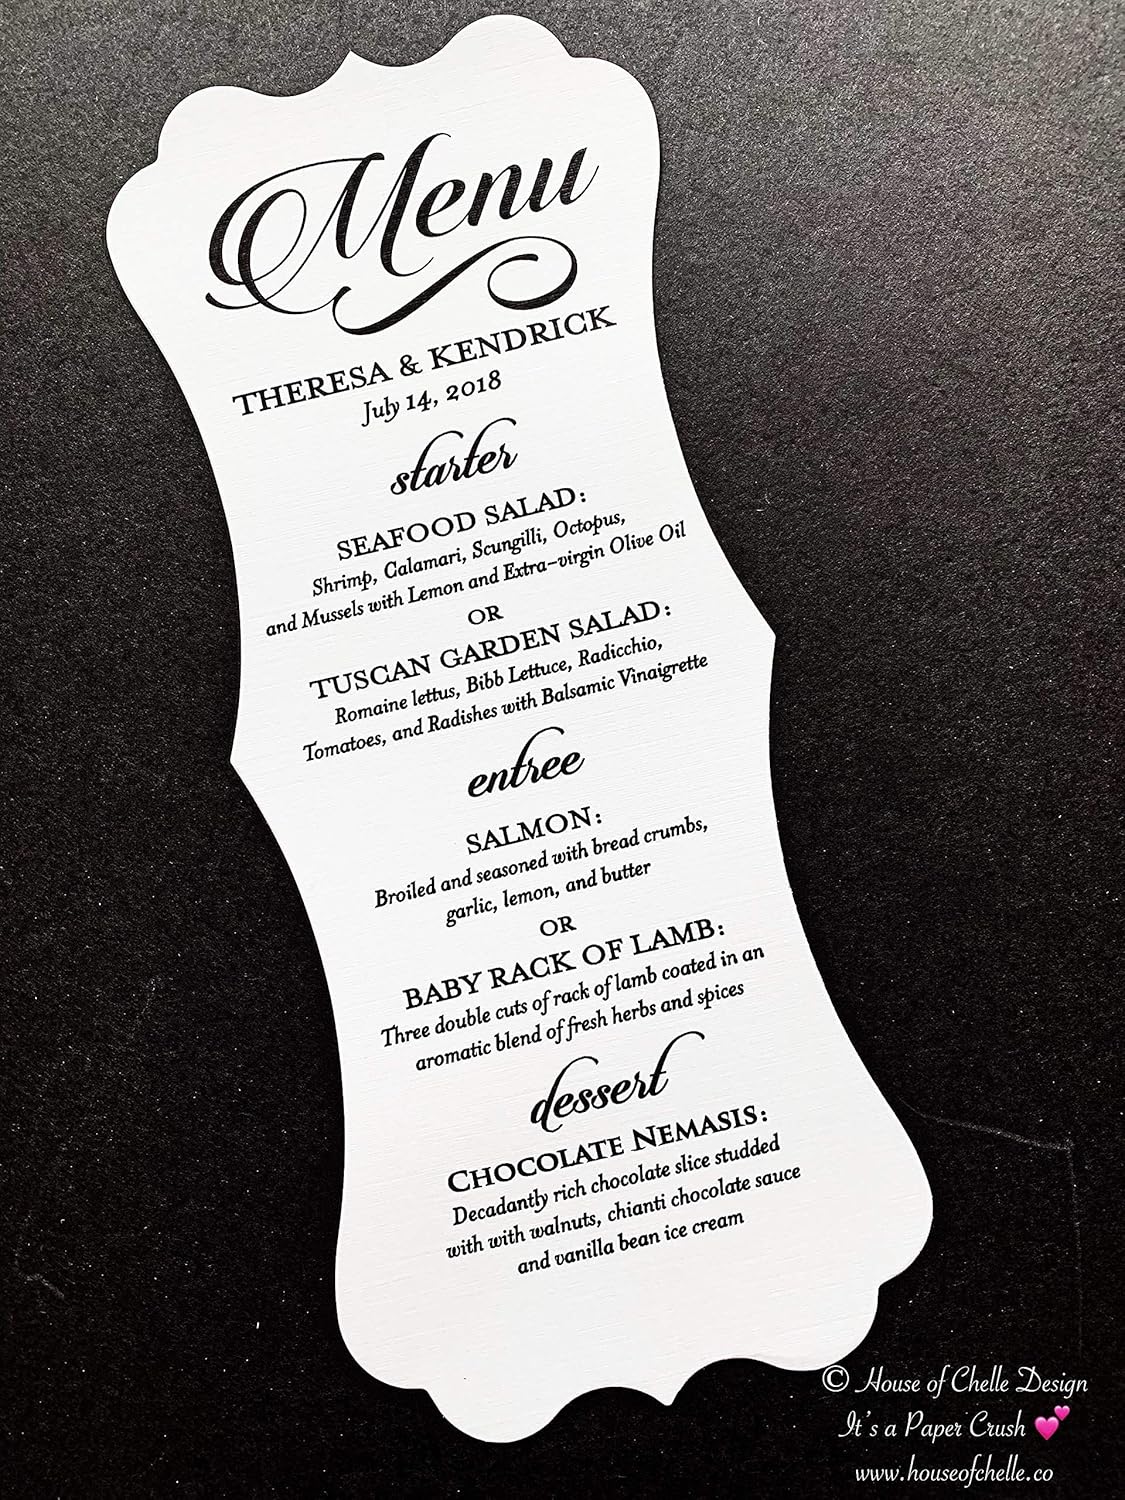 Menu
THERESA & KENDRICK
July 14, 2018
starter
SEAFOOD SALAD:
Shrimp, Calamari, Scungilli, Octopus,
and Mussels with Lemon and Extra-virgin Olive Oil
OR
TUSCAN GARDEN SALAD:
Romaine lettus, Bibb Lettuce, Radicchio,
Tomatoes, and Radishes with Balsamic Vinaigrette
entree
SALMON:
Broiled and seasoned with bread crumbs,
garlic, lemon, and butter
OR
BABY RACK OF LAMB:
Three double cuts of rack of lamb coated in an
aromatic blend of fresh herbs and spices
dessert
CHOCOLATE NEMASIS:
Decadantly rich chocolate slice studded
with with walnuts, chianti chocolate sauce
and vanilla bean ice cream
© House of Chelle Design
It's a Paper Crush 💕
www.houseofchelle.co